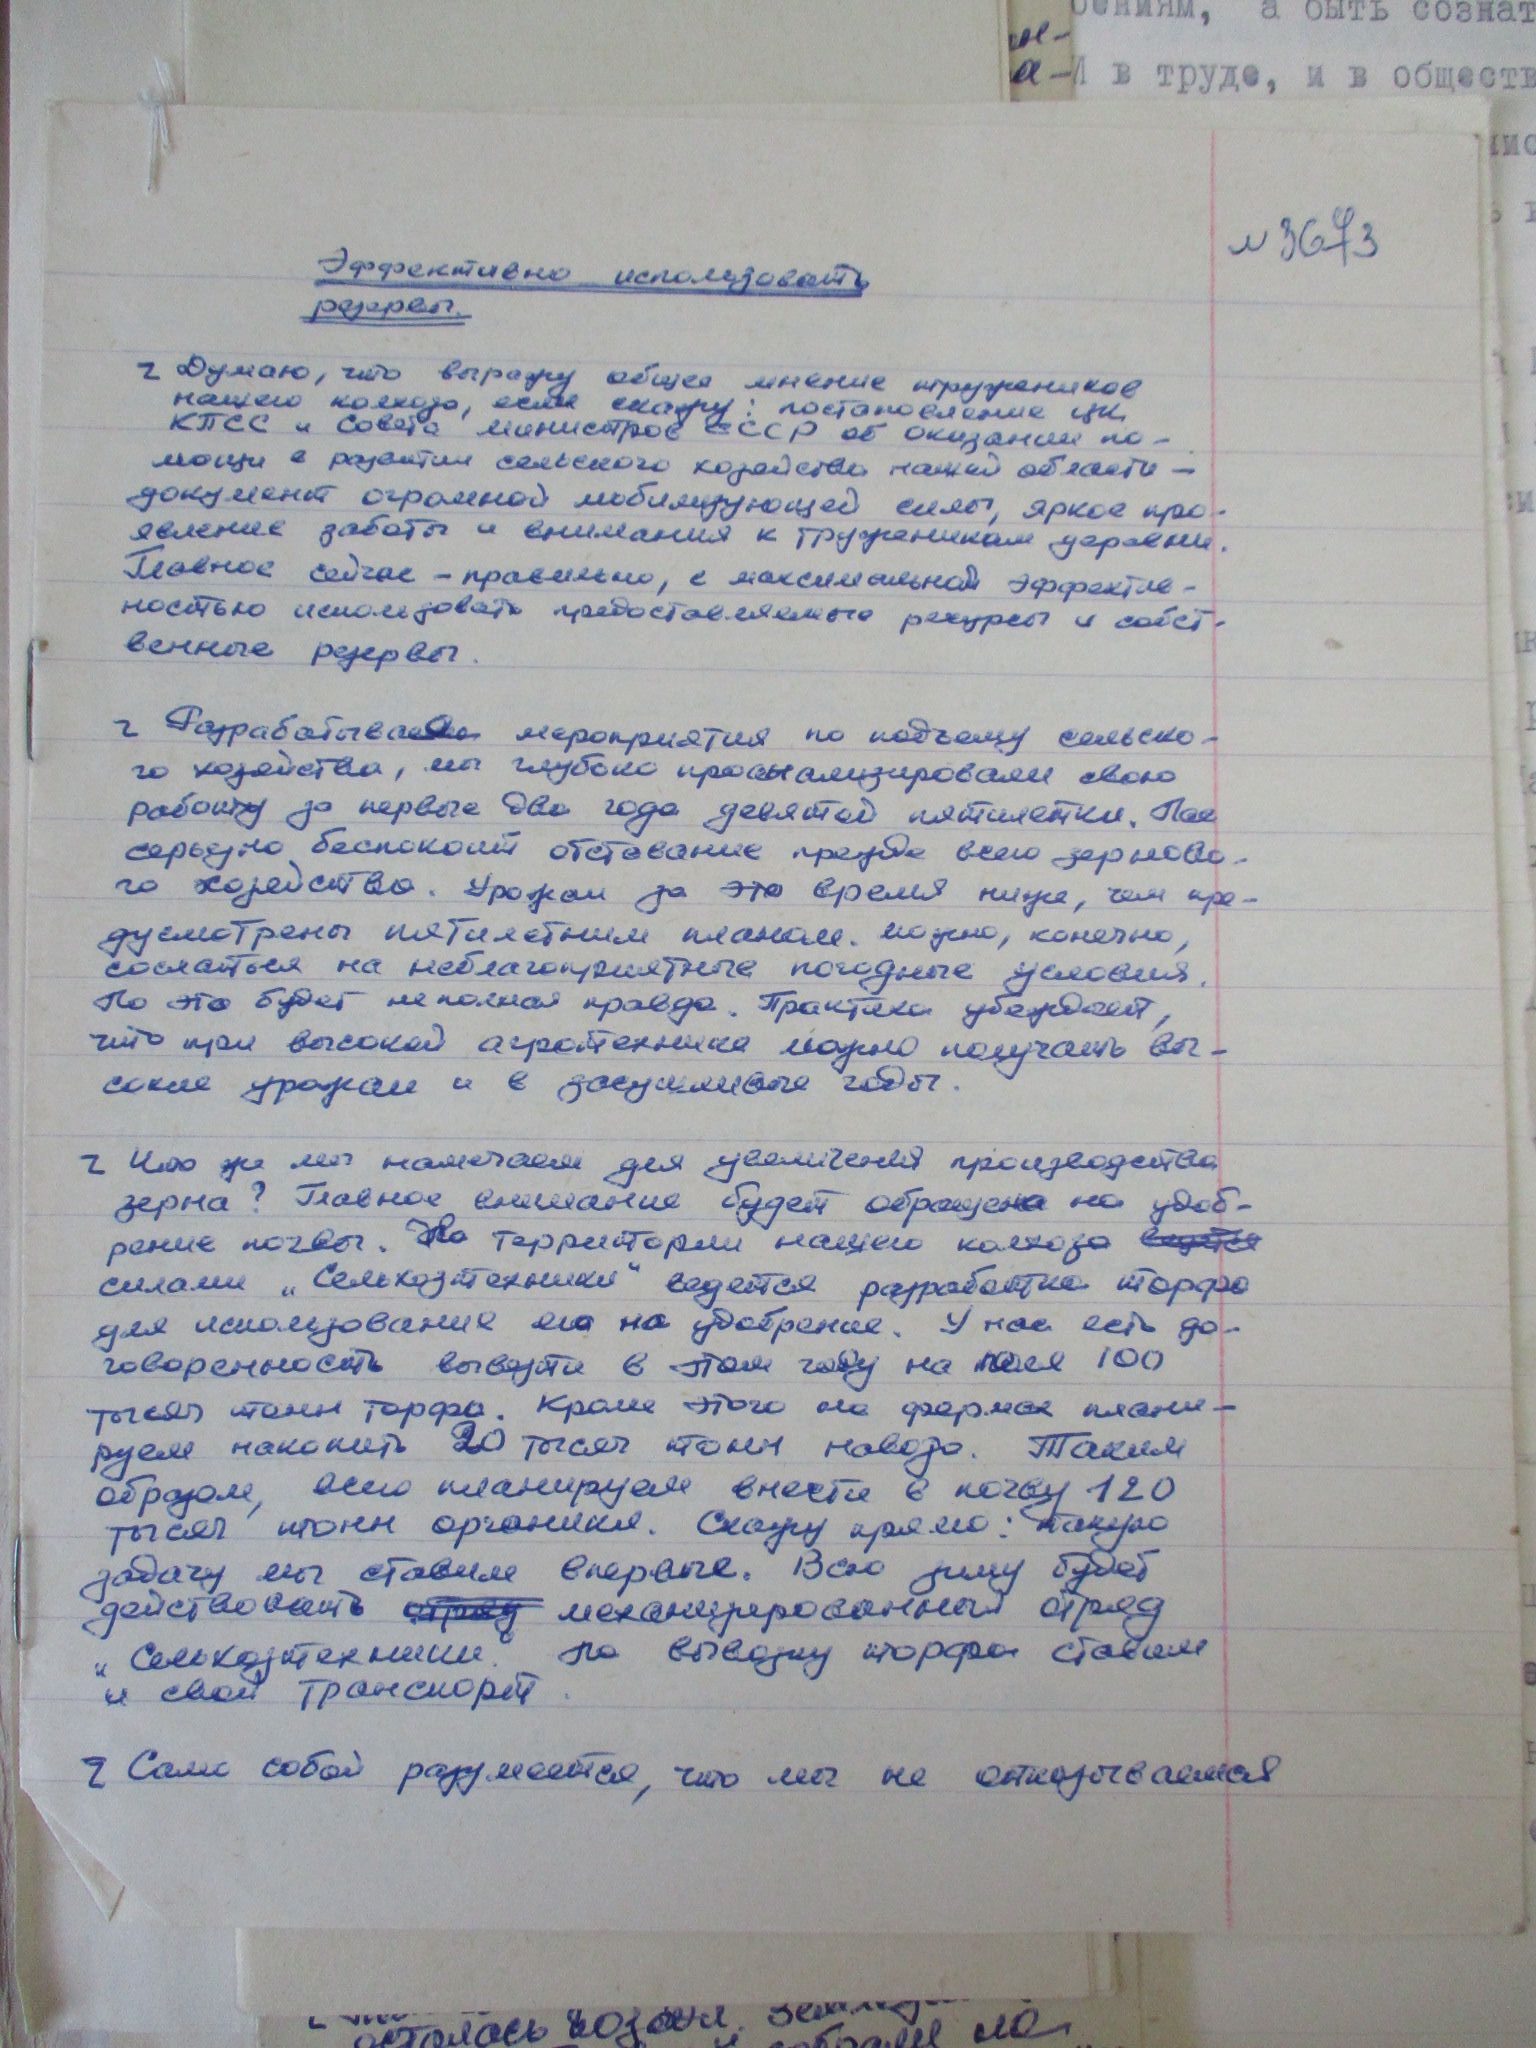 ениям, а быть сознат
не-
а-
И в труде, и в обществ
N 3673
Эффективно использовать
резервы.
Думаю, что выражу общее мнение тружеников
нашего колхоза, если скажу: постановление ЦК
КПСС и Совета министров СССР об оказании по-
мощи в развитии сельского хозяйства нашей области -
документ огромной мобилизующей силы, яркое про-
явление заботы и внимания к труженикам деревни.
Главное сейчас - правильно, с максимальной эффектив-
ностью использовать предоставляемые ресурсы и собст-
венные резервы.
Разрабатывая мероприятия по подъему сельско-
го хозяйства, мы глубоко проанализировали свою
работу за первые два года девятой пятилетки. Нас
серьезно беспокоит отставание прежде всего зерново-
го хозяйства. Урожаи за это время ниже, чем пре-
дусмотрены пятилетним планом. Можно, конечно,
сослаться на неблагоприятные погодные условия.
Но это будет неполная правда. Практика убеждает,
что при высокой агротехнике можно получать вы-
сокие урожаи и в засушливые годы.
Что же мы намечаем для увеличения производства
зерна? Главное внимание будет обращено на удоб-
рение почвы. На территории нашего колхоза ведется
силами „Сельхозтехники" ведется разработка торфа
для использования его на удобрение. У нас есть до-
говоренность вывезти в этом году на поля 100
тысяч тонн торфа. Кроме этого на фермах плани-
руем накопить 20 тысяч тонн навоза. Таким
образом, всего планируем внести в почву 120
тысяч тонн органики. Скажу прямо: такую
задачу мы ставим впервые. Всю зиму будет
действовать отряд механизированный отряд
„Сельхозтехники". На вывозку торфа ставим
и свой транспорт.
Само собой разумеется, что мы не отказываемся
осталось